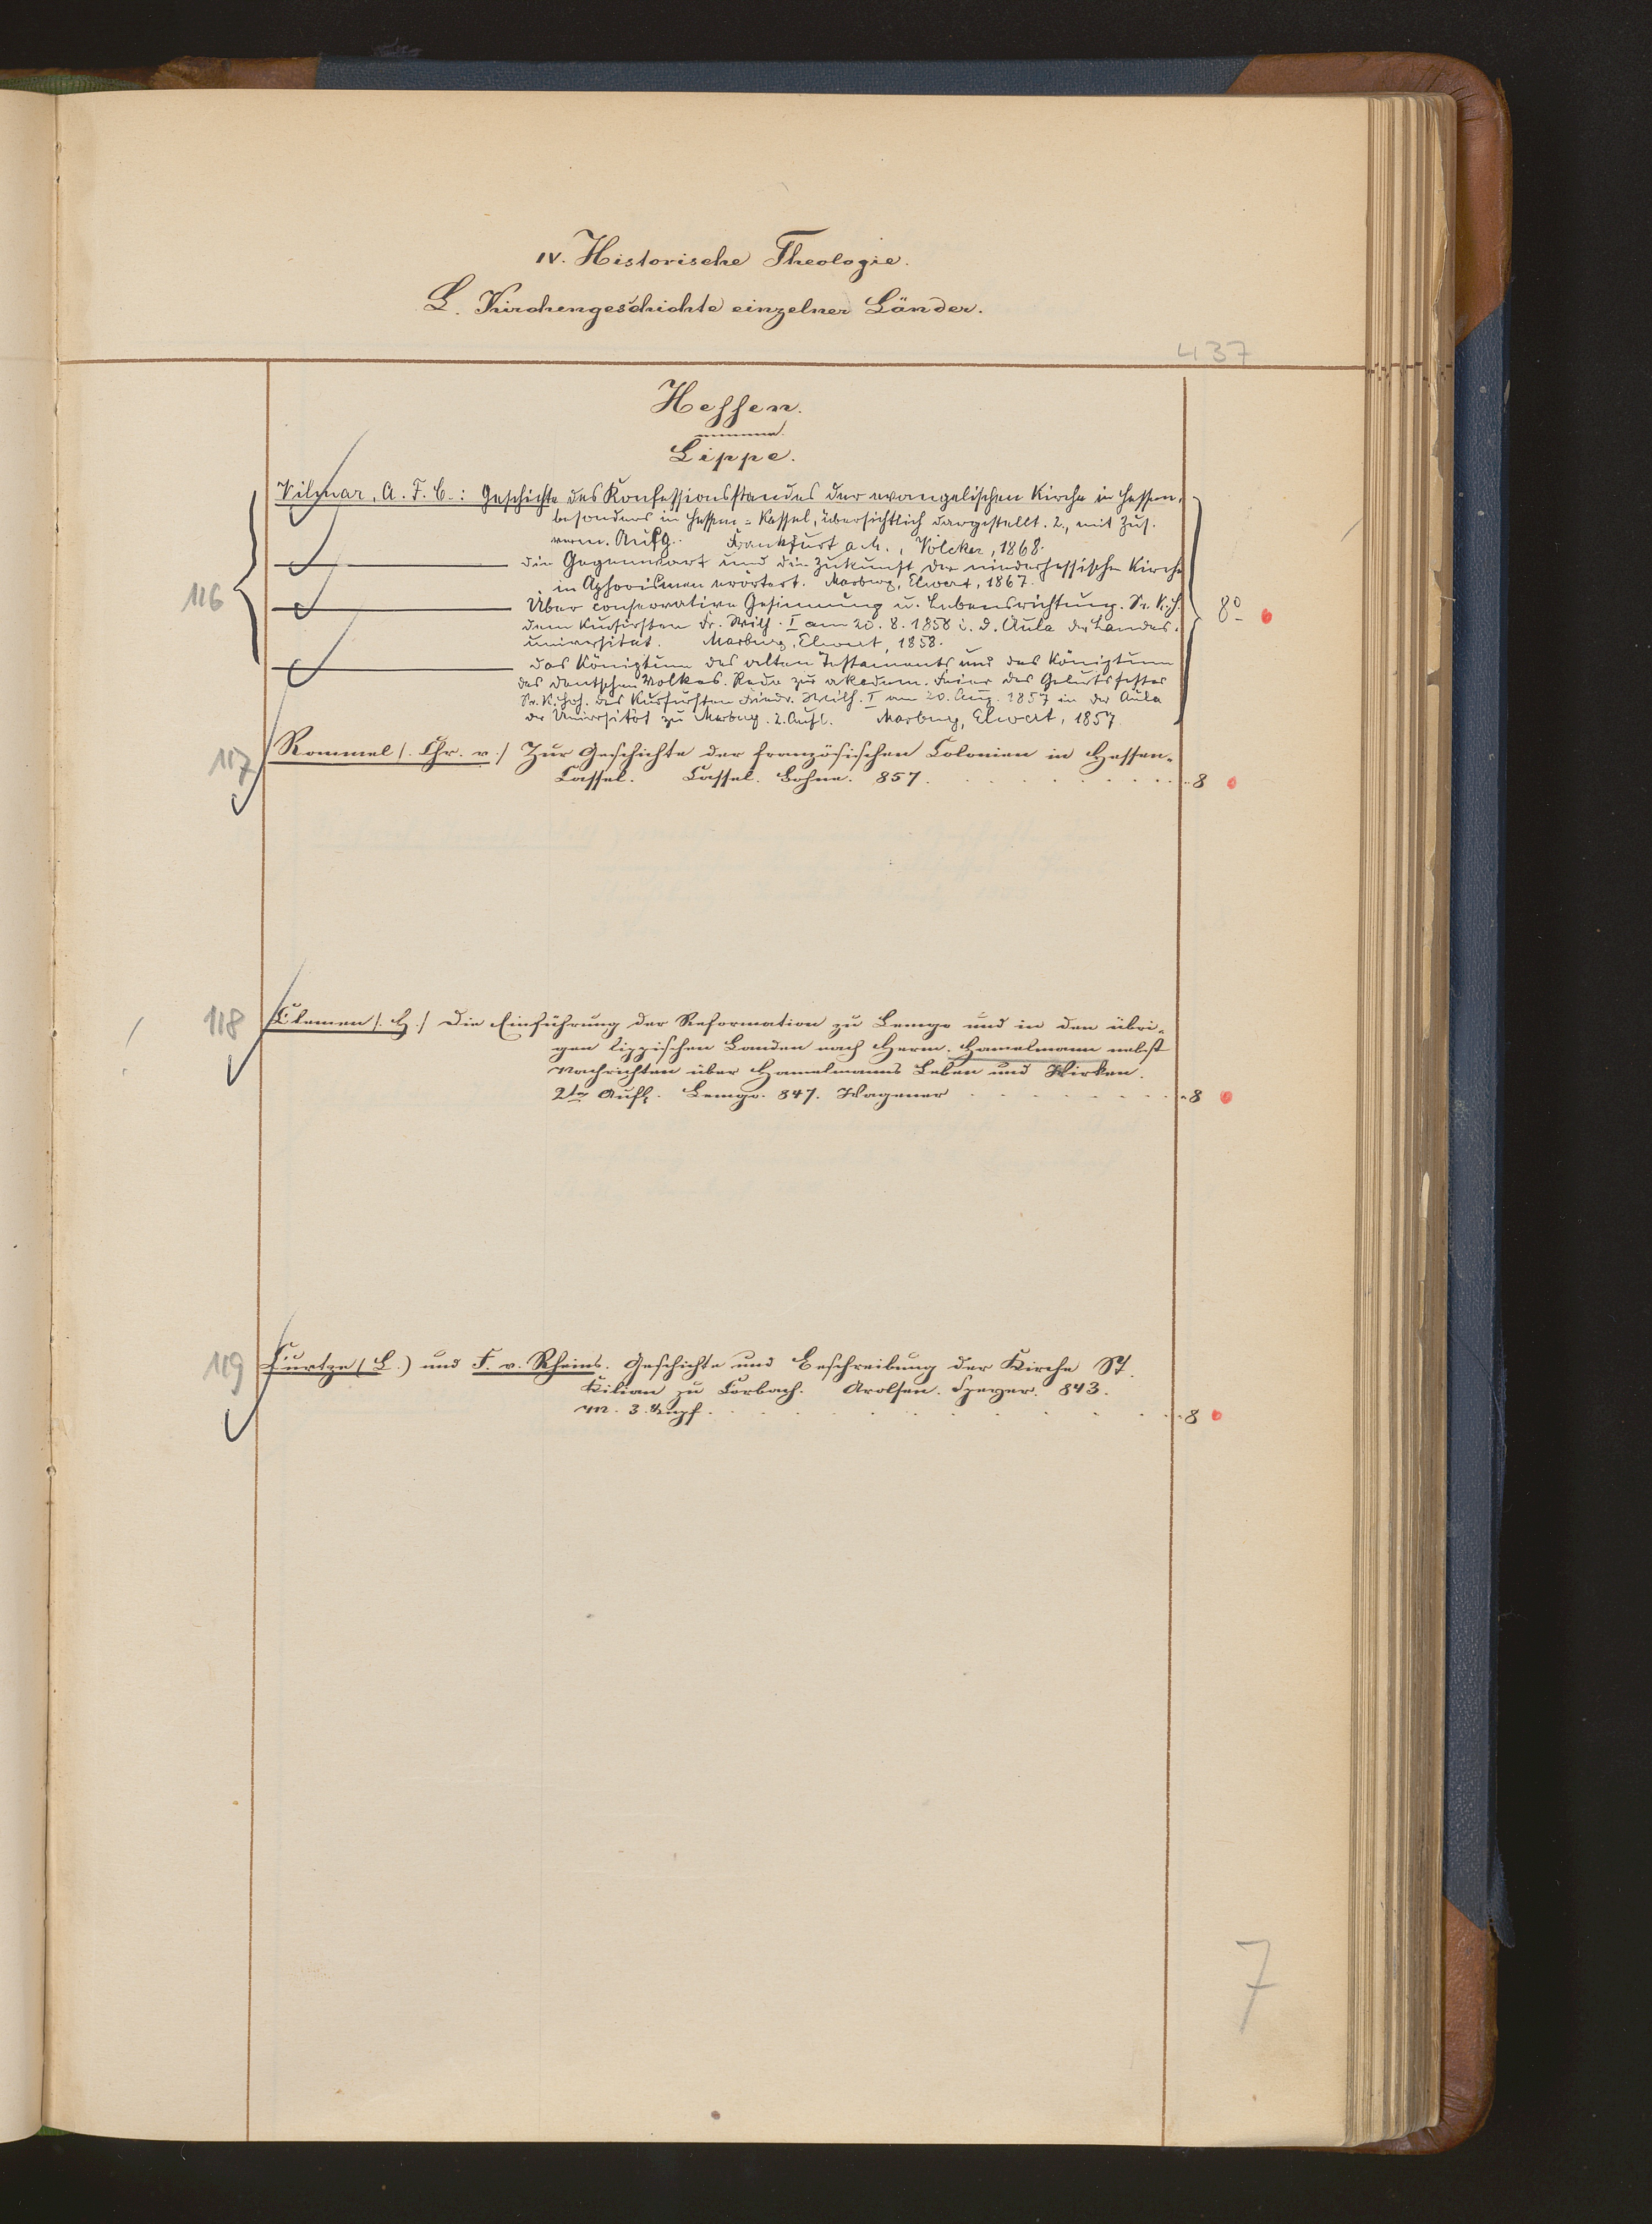 IV. Historische Theologie.
L. Kirchengeschichte einzelner Länder.
437
Hessen.
Lippe.
116
Vilmar, A. F. C.: Geschichte des Konfessionsstandes der evangelischen Kirche in Hessen,
besonders in Hessen-Kassel, übersichtlich dargestellt. 2., mit Zus.
verm. Ausg. Frankfurt a. M., Völcker, 1868.
die Gegenwart und die Zukunft der niederhessischen Kirche
in Aphorismen erörtert. Marburg, Elwert, 1867.
Über conservative Gesinnung u. Lebensrichtung. Sr. K. H.
dem Kurfürsten Fr. Wilh. I am 20. 8. 1858 i. d. Aula der Landes-
universität. Marburg, Elwert, 1858.
8°
das Königtum des alten Testaments und das Königtum
des deutschen Volkes. Rede zur akadem. Feier des Geburtsfestes
Sr. K. Hoh. des Kurfürsten Friedr. Wilh. I am 20. Aug. 1857 in der Aula
der Universität zu Marburg. 2. Aufl. Marburg, Elwert, 1857.
117 Rommel /. Chr. v./ Zur Geschichte der französischen Colonien in Hessen-
Cassel. Cassel. Bohne. 857. 8
118 Clemen /. H./ Die Einführung der Reformation zu Lemgo und in den übri-
gen lippischen Landen nach Herm. Hamelmann nebst
Nachrichten über Hamelmanns Leben und Wirken.
2te Aufl. Lemgo. 847. Wagener 8
119 Curtze (L.) und F. v. Rheins. Geschichte und Beschreibung der Kirche St.
Kilian zu Corbach. Arolsen. Speyer. 843.
M. 3. Kupf. 8
7